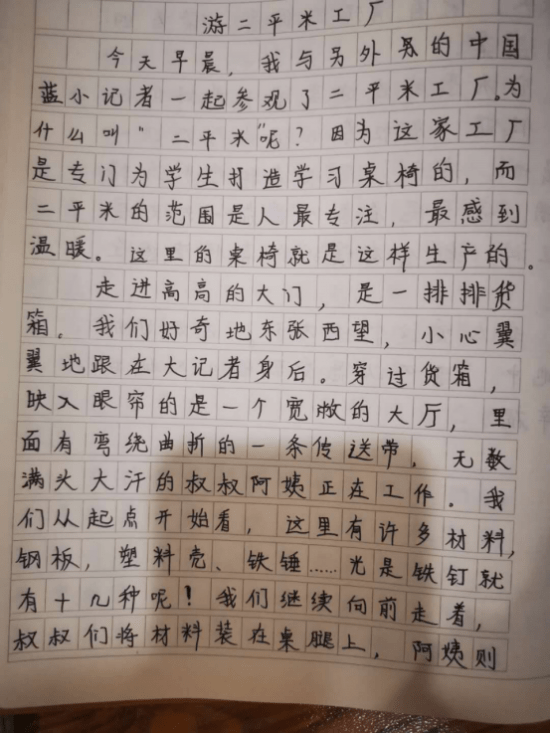 游二平米工厂
今天早晨，我与另外县的中国
蓝小记者一起参观了二平米工厂。为
什么叫“二平米”呢？因为这家工厂
是专门为学生打造学习桌椅的，而
二平米的范围是人最专注，最感到
温暖。这里的桌椅就是这样生产的。
走进高高的大门，是一排排货
箱。我们好奇地东张西望，小心翼
翼地跟在大记者身后。穿过货箱，
映入眼帘的是一个宽敞的大厅，里
面有弯绕曲折的一条传送带，无数
满头大汗的叔叔阿姨正在工作。我
们从起点开始看，这里有许多材料，
钢板，塑料壳、铁锤……光是铁钉就
有十几种呢！我们继续向前走着，
叔叔们将材料装在桌腿上，阿姨则